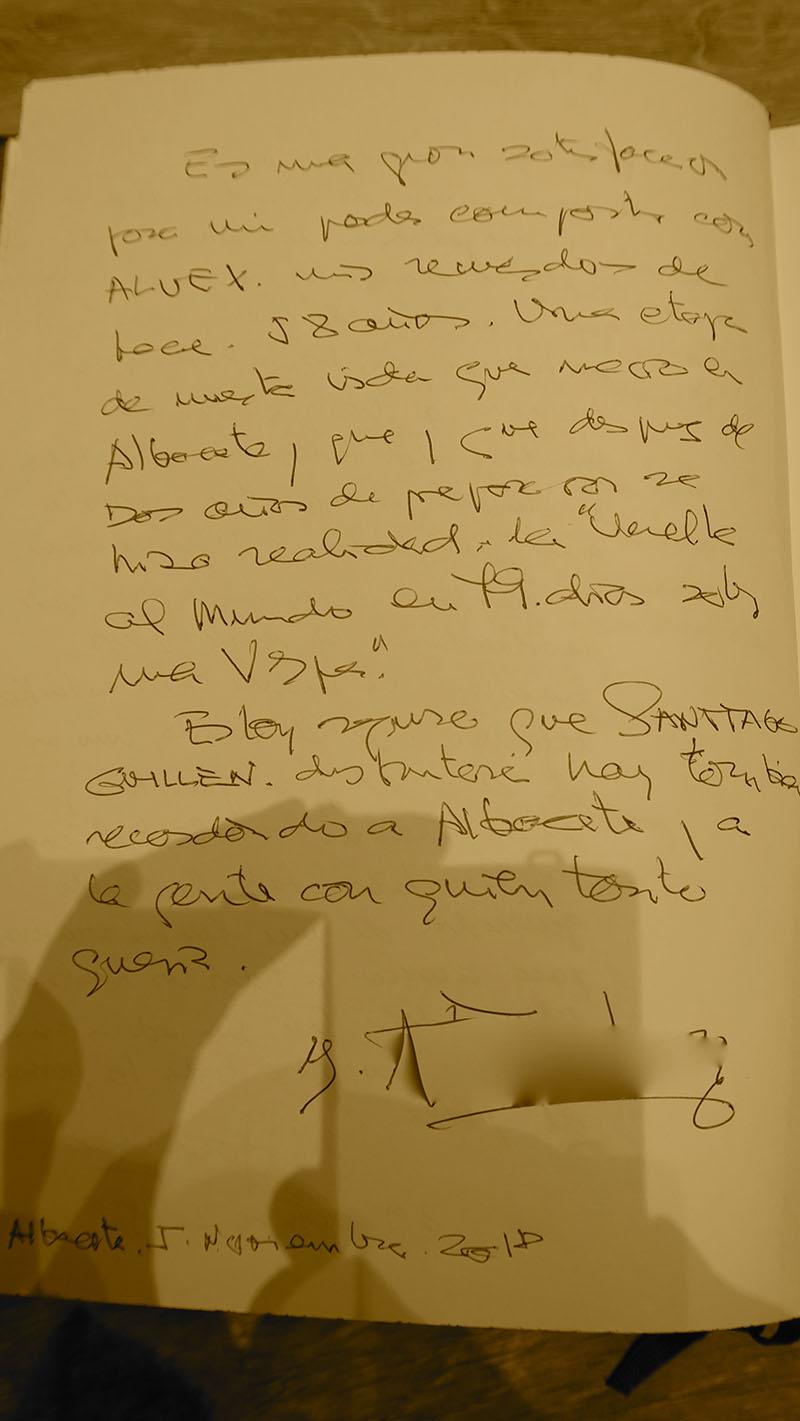 Es una gran satisfacción
para mi poder compartir con
ALVEX. mis recuerdos de
hace. 58 años. Una etapa
de nuestra vida que nacio en
Albacete, que, que despues de
Dos años de preparacion se
hizo realidad, la "Vuelta
al Mundo en 79. dias sobre
una Vespa".
Estoy seguro que SANTIAGO
GUILLEN. disfrutaré hoy tambien
recordando a Albacete, a
la gente con quien tanto
queria.
Albacete. 5. Noviembre.